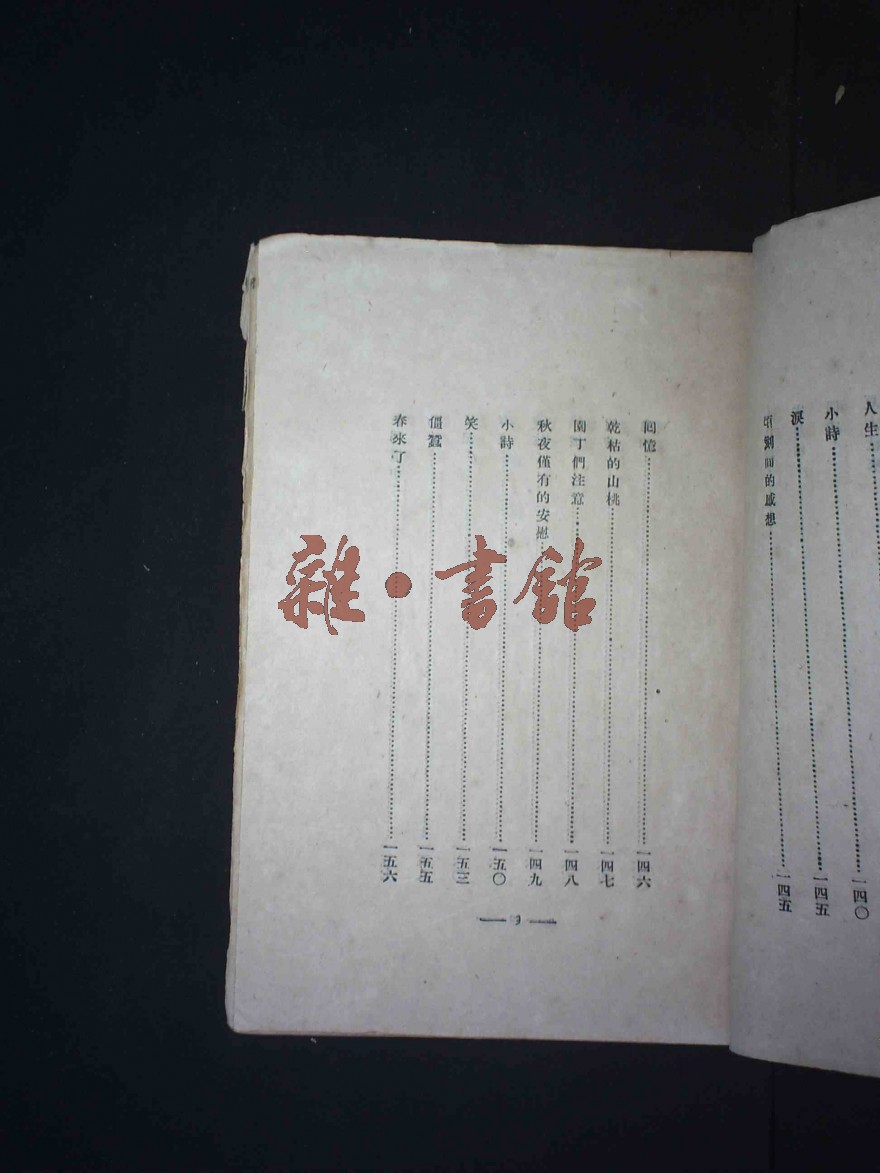 人生……一四〇
小詩……一四五
淚……一四五
的感想……一四五
回憶……一四六
乾枯的山桃……一四七
園丁們注意……一四八
秋夜僅有的安慰……一四九
小詩……一五〇
笑……一五三
僵蠶……一五五
春來了……一五六
— 9 —
雜·書館